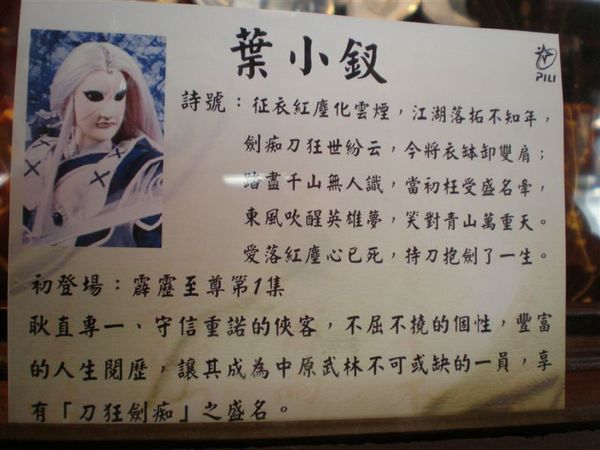 葉小釵
PILI
詩號：征衣紅塵化雲煙，江湖落拓不知年，
劍痴刀狂世紛云，今將衣缽卸雙肩；
踏盡千山無人識，當初枉受盛名牽，
東風吹醒英雄夢，笑對青山萬重天。
愛落紅塵心已死，持刀抱劍了一生。
初登場：霹靂至尊第1集
耿直專一、守信重諾的俠客，不屈不撓的個性，豐富
的人生閱歷，讓其成為中原武林不可或缺的一員，享
有「刀狂劍痴」之盛名。